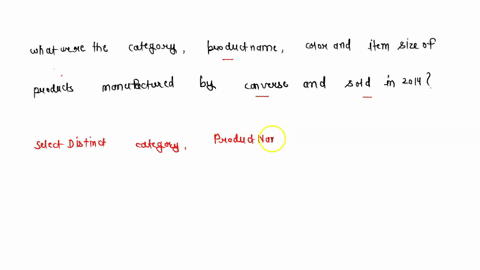 what were the category, product name, color and item size of
products manufactured by converse and sold in 2014?
Select Distinct category, Product Nam